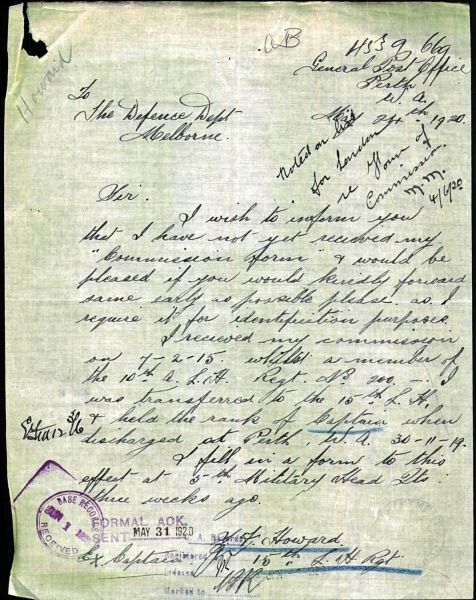 Howard
AB
4339 669
General Post Office
Perth
W. A.
24th 1920.
To
The Defence Dept
Melborne.
Noted on
for London
re Form of
Commission
4/6/20
Sir.
I wish to inform you
that I have not yet recieved my
"Commission form" & would be
pleased if you would kindly forward
same early as possible please. as I
require it for identification purposes.
I recieved my commission
on 7-2-15 whilst a member of
the 10th A. L. H. Regt. No 200. — I
was transferred to the 15th L. H.
& held the rank of Captain when
discharged at Perth W. A. 30-11-19.
I fill in a form to this
effect at 5th Military Head Qts
three weeks ago.
BASE RECORDS
JUN 1
RECEIVED
FORMAL ACK.
SENT MAY 31 1920
Registered
Indexed
Marked to
F. Howard
Ex Captain 15th L H Regt